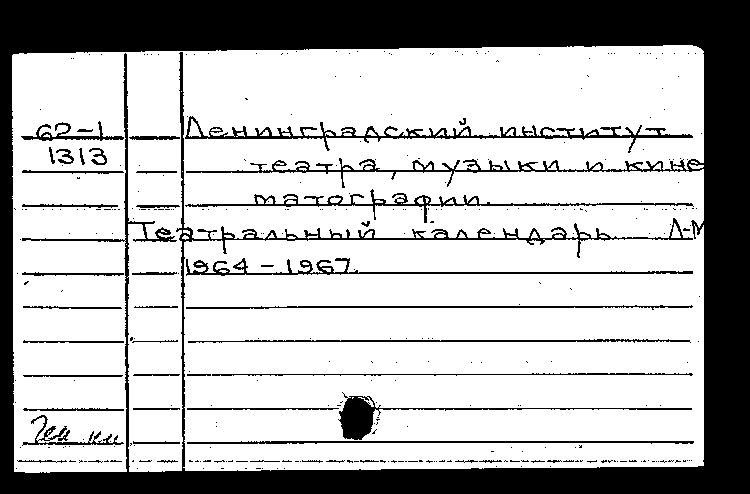 62-1 Ленинградский институт
1313 театра, музыки и кине
матографии.
Театральный календарь Л-М
1964-1967.